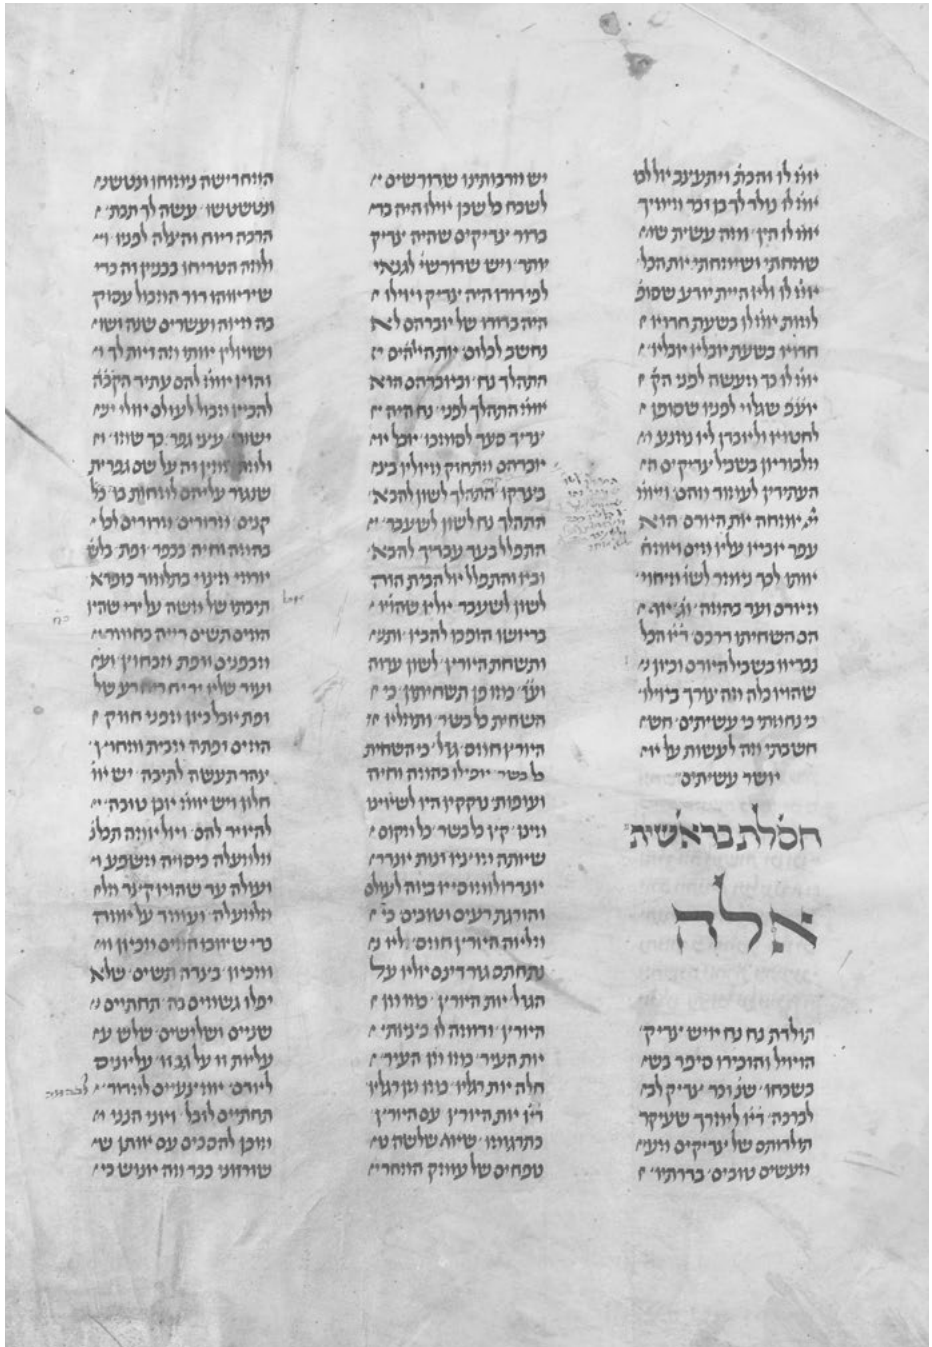 אמ' לו והכת' ויתעצב אל לבו
אמ' לו נולד לך בן זכר מימיך
אמ' לו הין ומה עשית שמ
שמחתי ושימחתי את הכל
אמ' לו ולא היית יודע שסופ'
למות אמ' לו בשעת חדויא
חדויא בשעת אבליא אבליא
אמ' לו כך מעשה לפני הק'
אע"פ שגלוי לפניו שסופן
לחטוא ולאובדן לא נמנע מ
מלבוראן בשביל צדיקים ה
העתידין לעמוד מהם ויאמ'
יי' אמחה את האדם הוא
עפר אביא עליו מים ואמח'
אותו לכך נאמר לשו' מיחוי
מאדם ועד בהמה וג' אף
הם השחיתו דרכם ד"א הכל
נברא בשביל האדם וכיון נ
שהוא כלה מה צורך באילו
כי נחמתי כי עשיתים חש
חשבתי מה לעשות על א
אשר עשיתים
חסלת בראשית
אלה
תולדת נח נח איש צדיק
הואיל והזכירו סיפר בש
בשבחו שנ' זכר צדיק לב
לברכה ד"א ללמדך שעיקר
תולדותם של צדיקים מע
מעשים טובים בדרתיו
יש מרבותינו שדורשים
לשבח כל שכן אילו היה בד
בדור צדיקים שהיה צדיק
יותר ויש שדורשי' לגנאי
לפי דורו היה צדיק ואילו
היה בדורו של אברהם לא
נחשב לכלום את האלהים
התהלך נח ובאברהם הוא
אומ' התהלך לפני נח היה
צריך סעד לסומכו אבל א
אברהם מתחזק מאליו בצ
בצדקו התהלך לשון להבא
התהלך נח לשון לשעבר
התפלל בעד עבדיך להבא
ובא והתפלל אל הבית הזה
לשון לשעבר אלא שהוי'ו
בראשו הופכו להבא ותש
ותשחת הארץ לשון ערוה
וע"ז כמו פן תשחיתון כי
השחית כל בשר ותמלא
הארץ חמס גזל כי השחית
כל בשר אפילו בהמה וחיה
ועופות נזקקין הין לשאינו
מינו קץ כל בשר כל מקום
שאתה מוציא זנות אנדר
אנדרולומוסייא באה לעולם
והורגת רעים וטובים כי
מלאה הארץ חמס לא נ
נתחתם גזר דינם אלא על
הגזל את הארץ כמו מן
הארץ ודומה לו כצאתי
את העיר כמו מן העיר
חלה את רגליו כמו מן רגליו
ד"א את הארץ עם הארץ
בתרגומו שאף שלשה ט
טפחים של עומק המחרי
המחרישה נימוחו ונטשט
ונטשטשו עשה לך תבת
הרבה ריוח והצלה לפניו ו
ולמה הטריחו בבנין זה כדי
שיראוהו דור המבול עסוק
בה מאה ועשרים שנה וש
ושואלין אותו מה זאת לך ו
והוא אומ' להם עתיד הקב'ה
להביא מבול לעולם אולי יש
ישובו עצי גפר כך שמו ו
ולמה ממין זה על שם גפרית
שנגזר עליהם למחות בו כל
קנים מדורים מדורים לכל
בהמה וחיה בכפר זפת בלש'
ארמי מצינו בתלמוד כופרא
תיבתו של משה על ידי שהיו
המים תשים דייה בחומר
מבפנים וזפת מבחוץ וע
ועוד שלא יריח ריח רע של
זפת אבל כאן מפני חוזק
המים זפתה מבית ומחוץ
צהר תעשה לתיבה יש או'
חלון ויש אומ' אבן טובה
להאיר להם ואל אמה תכלנ'
מלמעלה כיסויה משפע ו
ועולה עד שהוא קצר מל
מלמעלה ועומד על אמה
כדי שיזובו המים מכאן ומ
ומכאן בצדה תשים שלא
יפלו גשמים בה תחתיים
שניים ושלישים שלש ע
עליות זו על גב זו עליונים
לאדם אמצעיים למדור
תחתיים לזבל ואני הנני
מוכן להסכים עם אותן ש
שזרזוני כבר מה אנוש כי